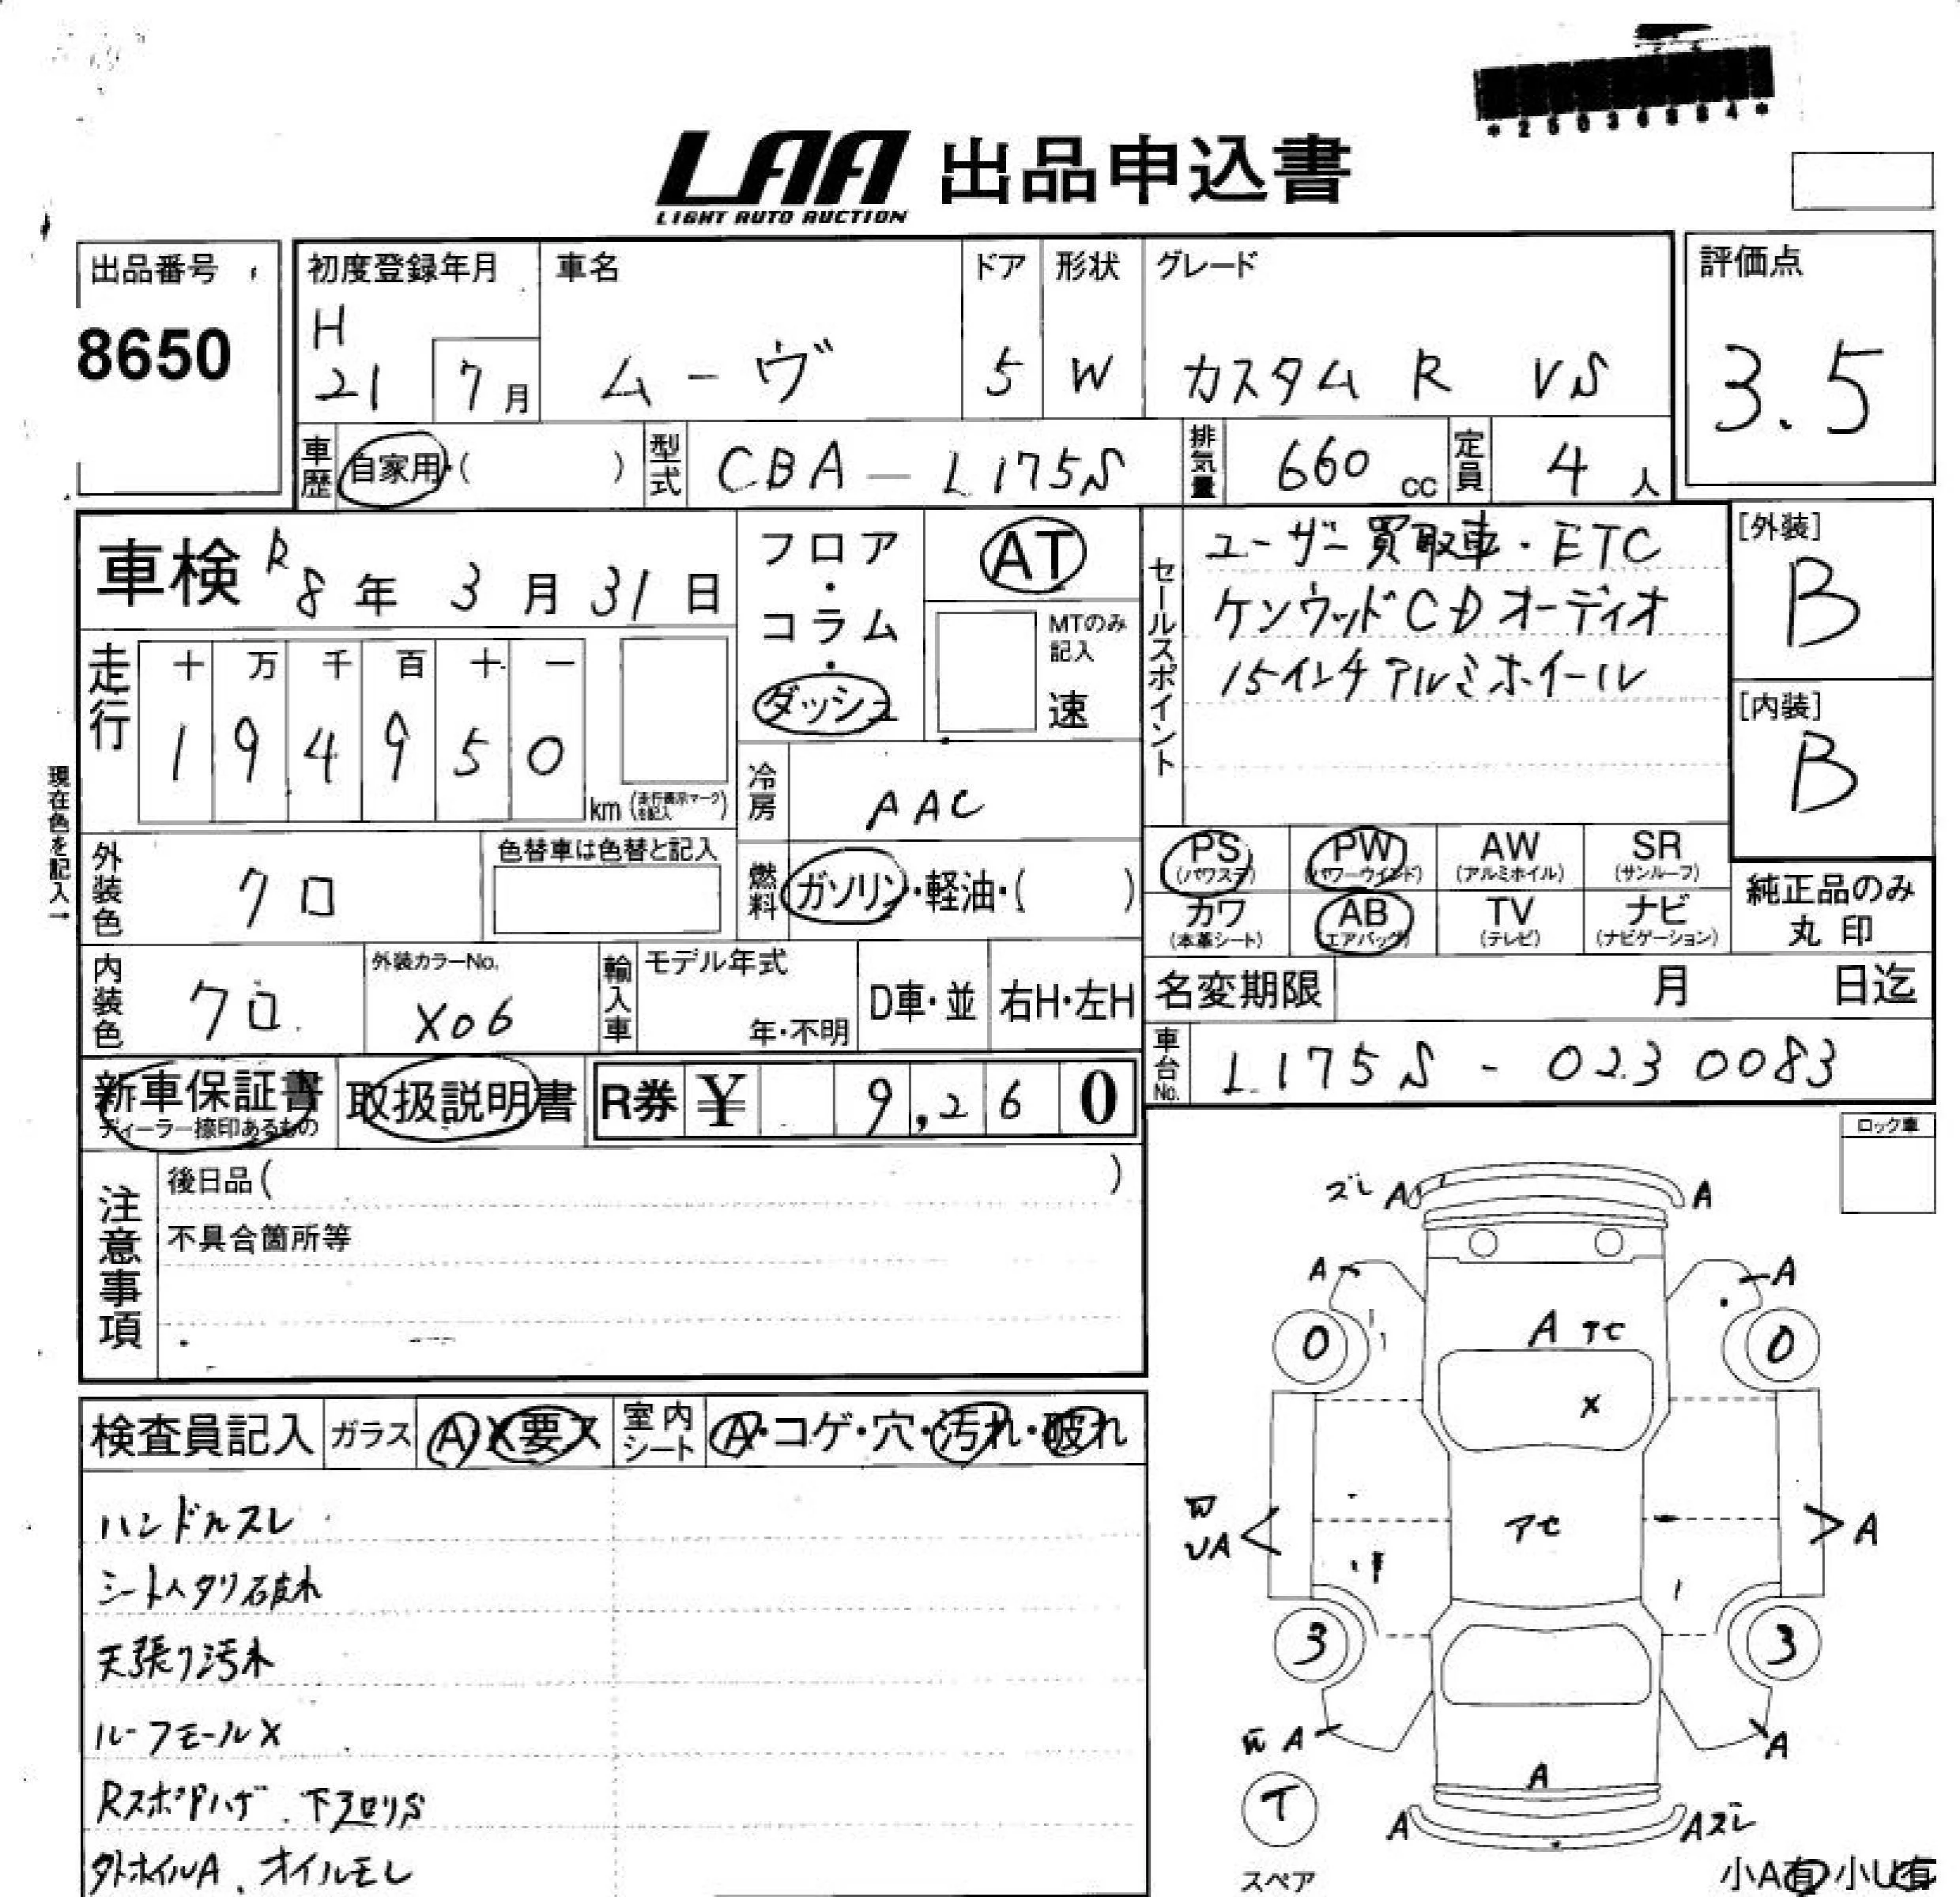 LAA 出品申込書
LIGHT AUTO AUCTION
出品番号
8650
初度登録年月
H
21 7月
車名
ムーヴ
ドア
5
形状
W
グレード
カスタム R VS
評価点
3.5
車歴 自家用・( )
型式 CBA-L175S
排気量 660 cc
定員 4 人
車検 R8年 3月 31日
フロア・コラム・ダッシュ
AT
MTのみ記入
速
走行
十 万 千 百 十 一
1 9 4 9 5 0 km
(走行表示マークを記入)
現在色を記入→
冷房 AAC
セールスポイント
ユーザー買取車・ETC
ケンウッドCDオーディオ
15インチアルミホイール
[外装]
B
[内装]
B
外装色 クロ
色替車は色替と記入
燃料 ガソリン・軽油・( )
PS (パワステ)
PW (パワーウインド)
AW (アルミホイル)
SR (サンルーフ)
カワ (本革シート)
AB (エアバッグ)
TV (テレビ)
ナビ (ナビゲーション)
純正品のみ
丸印
内装色 クロ
外装カラーNo.
X06
輸入車
モデル年式
年・不明
D車・並
右H・左H
名変期限 月 日迄
車台No. L175S-0230083
新車保証書
ディーラー捺印あるもの
取扱説明書
R券 ¥ 9,260
ロック車
注意事項
後日品( )
不具合箇所等
検査員記入
ガラス A・X要ス
室内シート A・コゲ・穴・汚れ・破れ
ハンドルスレ
シートヘタリ破れ
天張り汚れ
ルーフモールX
下廻りS
外ホイルA、オイルモレ
ズレ A A
A A
0 0
A アセ
X
UA A
アセ
3 3
A A
A
T
スペア
A Aズレ
小A有 小U有